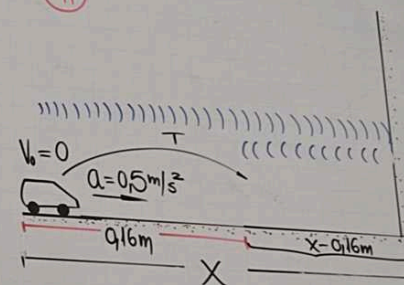 T
V₀=0
a=0,5m/s²
0,16m
x-0,16m
X